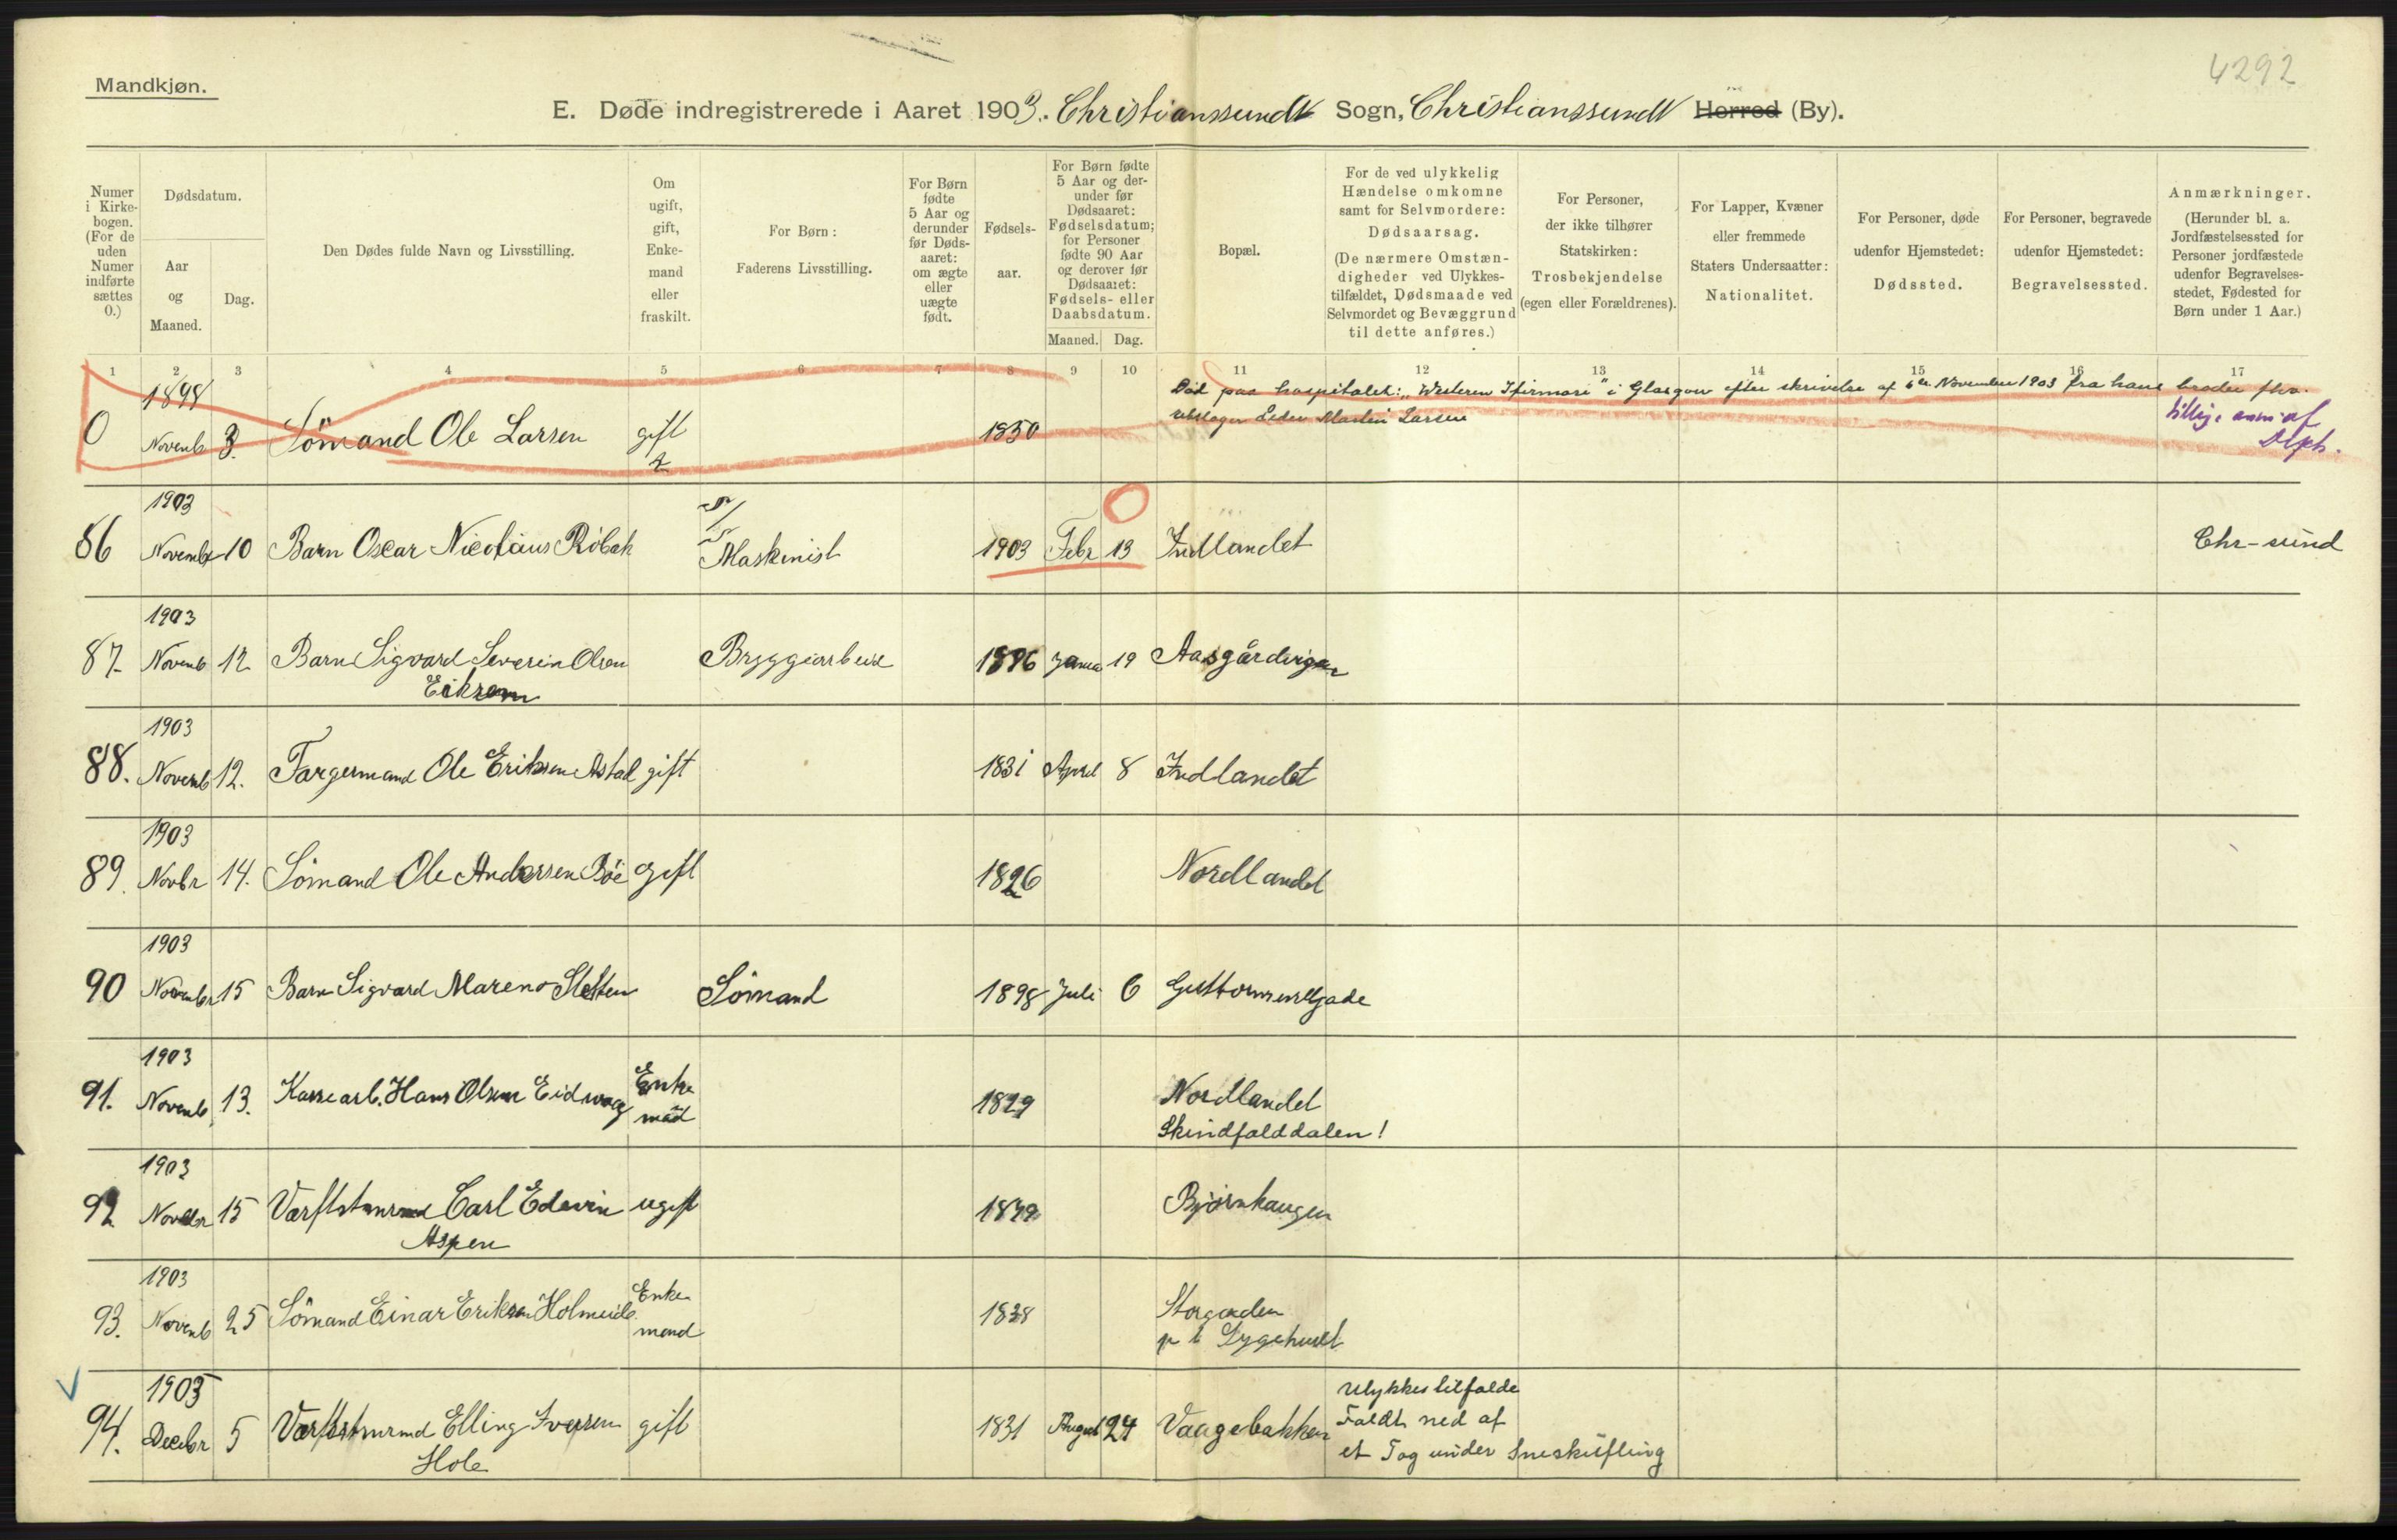 4292
Mandkjøn.
E. Døde indregistrerede i Aaret 1903. Christianssunds Sogn, Christianssunds Herred (By).
Numer i Kirkebogen. (For de uden Numer indførte sættes 0.)
Dødsdatum.
Aar og Maaned.
Dag.
Den Dødes fulde Navn og Livsstilling.
Om ugift, gift, Enkemand eller fraskilt.
For Børn: Faderens Livsstilling.
For Børn fødte 5 Aar og derunder før Dødsaaret: om ægte eller uægte født.
Fødselsaar.
For Børn fødte 5 Aar og derunder før Dødsaaret: Fødselsdatum; for Personer fødte 90 Aar og derover før Dødsaaret: Fødsels- eller Daabsdatum.
Maaned. Dag.
Bopæl.
For de ved ulykkelig Hændelse omkomne samt for Selvmordere: Dødsaarsag. (De nærmere Omstændigheder ved Ulykkestilfældet, Dødsmaade ved Selvmordet og Bevæggrund til dette anføres.)
For Personer, der ikke tilhører Statskirken: Trosbekjendelse (egen eller Forældrenes).
For Lapper, Kvæner eller fremmede Staters Undersaatter: Nationalitet.
For Personer, døde udenfor Hjemstedet: Dødssted.
For Personer, begravede udenfor Hjemstedet: Begravelsessted.
Anmærkninger. (Herunder bl. a. Jordfæstelsessted for Personer jordfæstede udenfor Begravelsesstedet, Fødested for Børn under 1 Aar.)
1 2 3 4 5 6 7 8 9 10 11 12 13 14 15 16 17
0 1898 Novemb 3. Sömand Ole Larsen gift 1850
Död paa hospitalet: "Western Ifirmari" i Glasgow efter skrivelse af 6te November 1903 fra hans broder
Peder Martin Larsen
tillige anm. af
86 1903 Novembr 10 Barn Oscar Nicolaus Röbek Maskinist 1903 Febr 13 Indlandet Chr-sund
87. 1903 Novemb 12 Barn Sigvard Severin Olsen Eikrem Bryggearbeid 1896 Janua 19 Aasgårdvigen
88. 1903 Novemb 12. Fargermand Ole Eriksen Astad gift 1831 April 8 Indlandet
89. 1903 Novbr 14. Sömand Ole Andersen Böe Gift 1826 Nordlandet
90 1903 Novembr 15 Barn Sigvard Mareno Sletten Sömand 1898 Juli 6 Guttormsensgade
91. 1903 Novemb 13. Kassearb. Hans Olsen Eidsvaag Enke mād 1829 Nordlandet Skindfalddalen!
92 1903 Novbr 15 Værftstømrmd Carl Edevin Aspen ugift 1879 Björnhaugen
93. 1903 Novemb 25 Sömand Einar Eriksen Holmeide Enke mand 1828 Storgaden p t Sygehuset
94. 1903 Decebr 5 Værftstømrmd Elling Iversen Hole gift 1831 August 24 Vaagebakken
Ulykkestilfælde
Faldt ned af
et Tag under Sneskufling